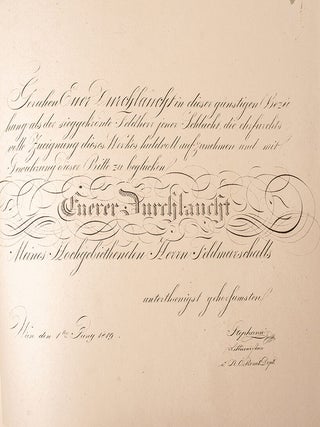 Geruhen Euer Durchlaucht in dieser günstigen Bezie
hung als der sieggekrönte Feldherr jener Schlacht, die ehrfurchts
volle Zueignung dieses Werkes huldvoll aufzunehmen und mit
Gewährung dieser Bitte zu beglücken
Euerer Durchlaucht
Meines Hochgebiethenden Herrn Feldmarschalls
unterthenigst gehorsamsten
Wien den 1ten Juny 1819.
Stephan